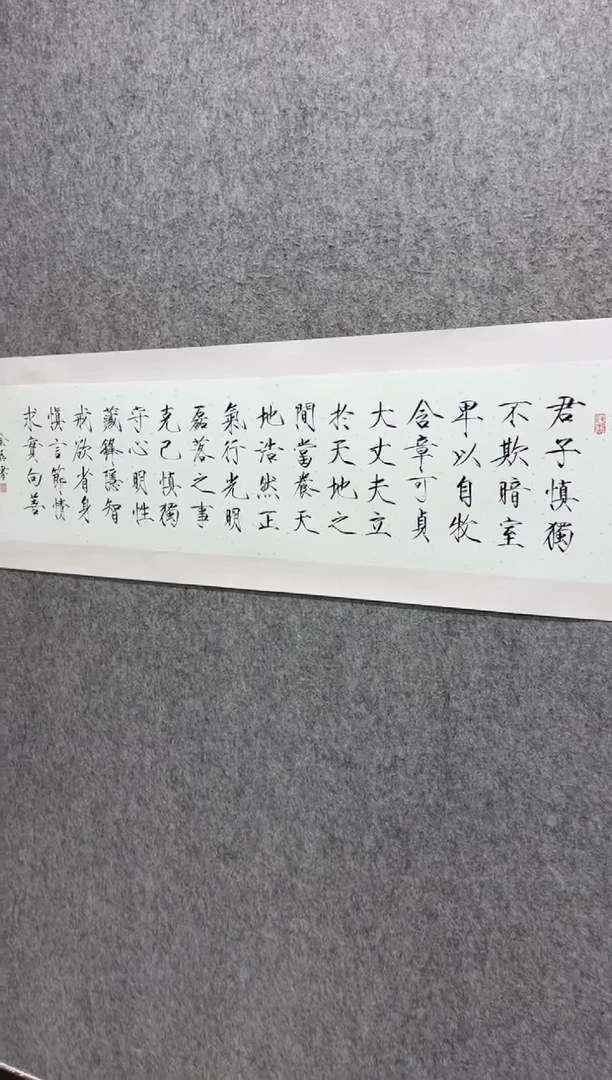 君子慎獨
不欺暗室
卑以自牧
含章可貞
大丈夫立
於天地之
間當養天
地浩然正
氣行光明
磊落之事
克己慎獨
守心明性
藏鋒隱智
戒欲省身
慎言節憤
求實向善